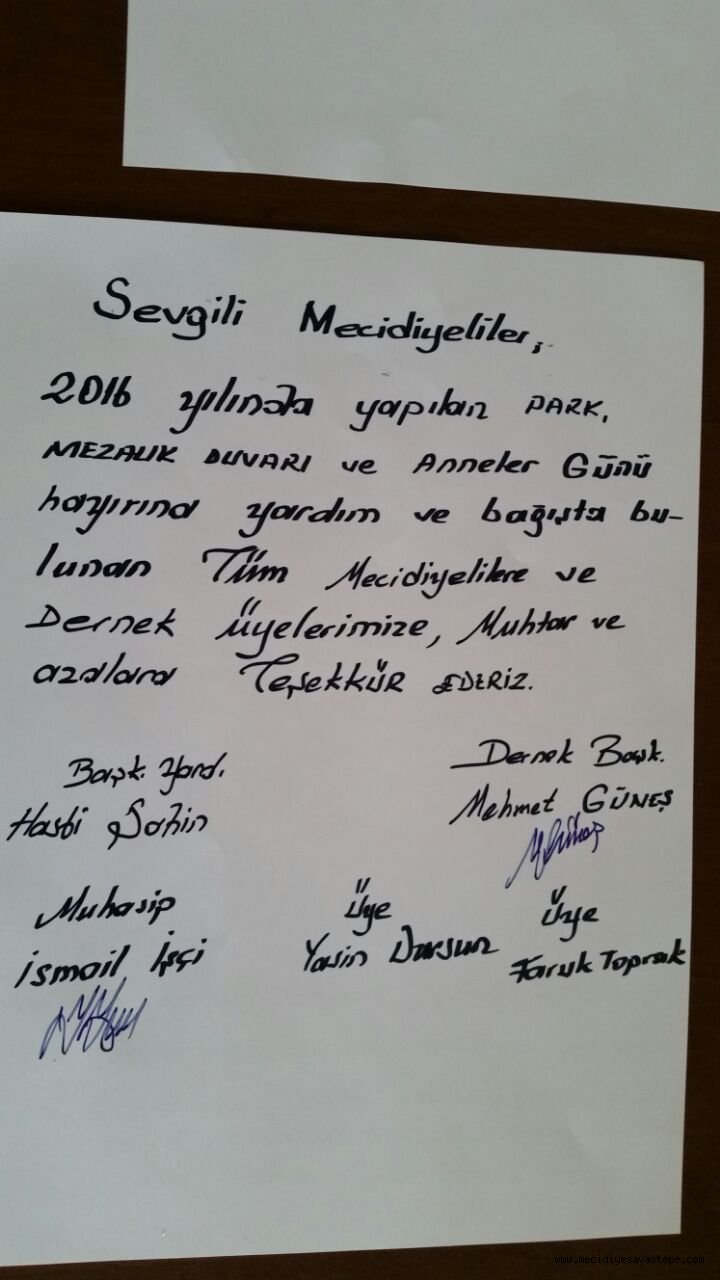 Sevgili Mecidiyeliler,
2016 yılında yapılan PARK,
MEZALIK DUVARI ve Anneler GÜNÜ
hayırına yardım ve bağışta bu-
lunan Tüm Mecidiyelilere ve
Dernek üyelerimize, Muhtar ve
azalara TeşekkÜR EDERİZ.
Dernek Başk.
Başk. Yard.
Mehmet GÜNEŞ
Hasbi Şahin
Muhasip Üye Üye
İsmail İşçi Yasin Dursun Faruk Toprak
www.mecidiyesavastepe.com